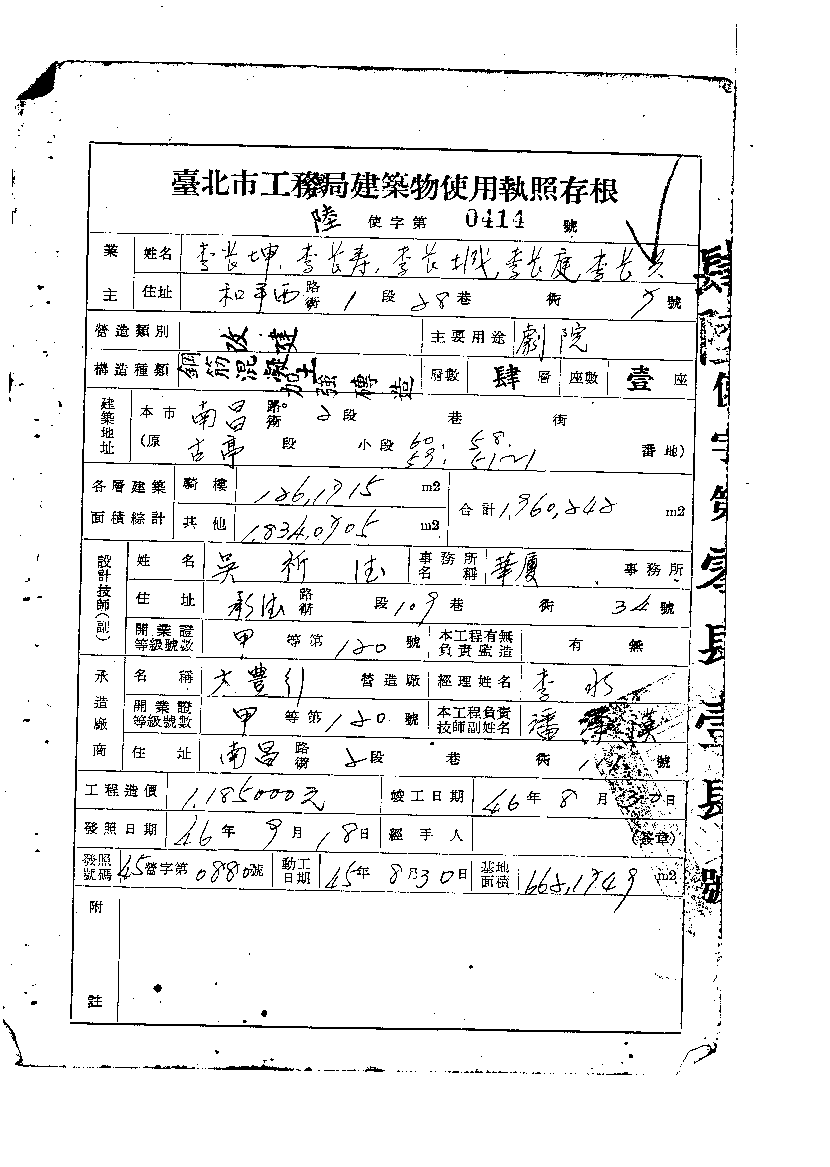 臺北市工務局建築物使用執照存根
陸 使字第 0414 號
業主 姓名 李長坤、李長寿、李長城、李長庭、李長
住址 和平西 路街 1 段 28 巷 衖 號
營造類別 改建 主要用途 劇院
構造種類 鋼筋混凝土加強磚造 層數 肆 層 座數 壹 座
建築地址 本市 南昌 路街 2 段 巷 衖
(原 古亭 段 小段 60. 58. 59. 番地)
各層建築面積綜計 騎樓 m2 合計 m2
其他 m2
設計技師(副) 姓名 吳 事務所名稱 華廈 事務所
住址 路街 段 109 巷 衖 34 號
開業證等級號數 甲 等第 120 號 本工程有無負責監造 有 無
承造廠商 名稱 大豊行 營造廠 經理姓名 李 水
開業證等級號數 甲 等第 120 號 本工程負責技師副姓名 潘 漢
住址 南昌 路街 2 段 巷 衖 號
工程造價 1,185000元 竣工日期 46 年 8 月 30 日
發照日期 46 年 9 月 18 日 經手人 (簽章)
發照號碼 45 營字第 0880 號 動工日期 45 年 8 月 30 日 基地面積 m2
附註
肆陸使字第零肆壹肆號